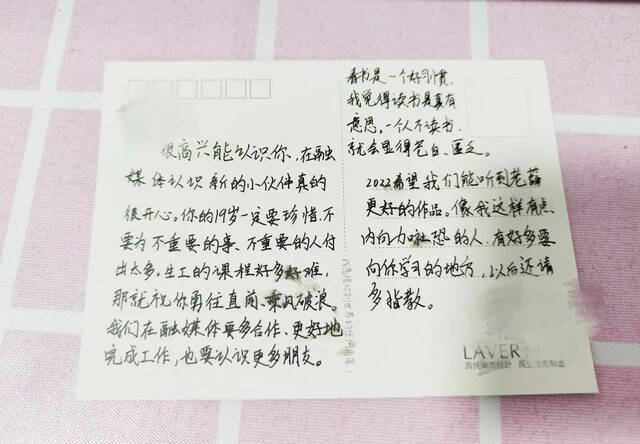 很高兴能认识你,在融
媒体认识新的小伙伴真的
很开心。你的19岁一定要珍惜.不
要为不重要的事、不重要的人付
出太多。生工的课程好多好难,
那就祝你勇往直前、乘风破浪。
我们在融媒体要多合作、更好地
完成工作,也要认识更多朋友。
看书是一个好习惯,
我觉得读书是真有
意思。一个人不读书.
就会显得苍白、匮乏。
2022希望我们能听到老薛
更好的作品。像我这样有点
内向力社恐的人.有好多要
向你学习的地方,以后还请
多指教。
LAVER